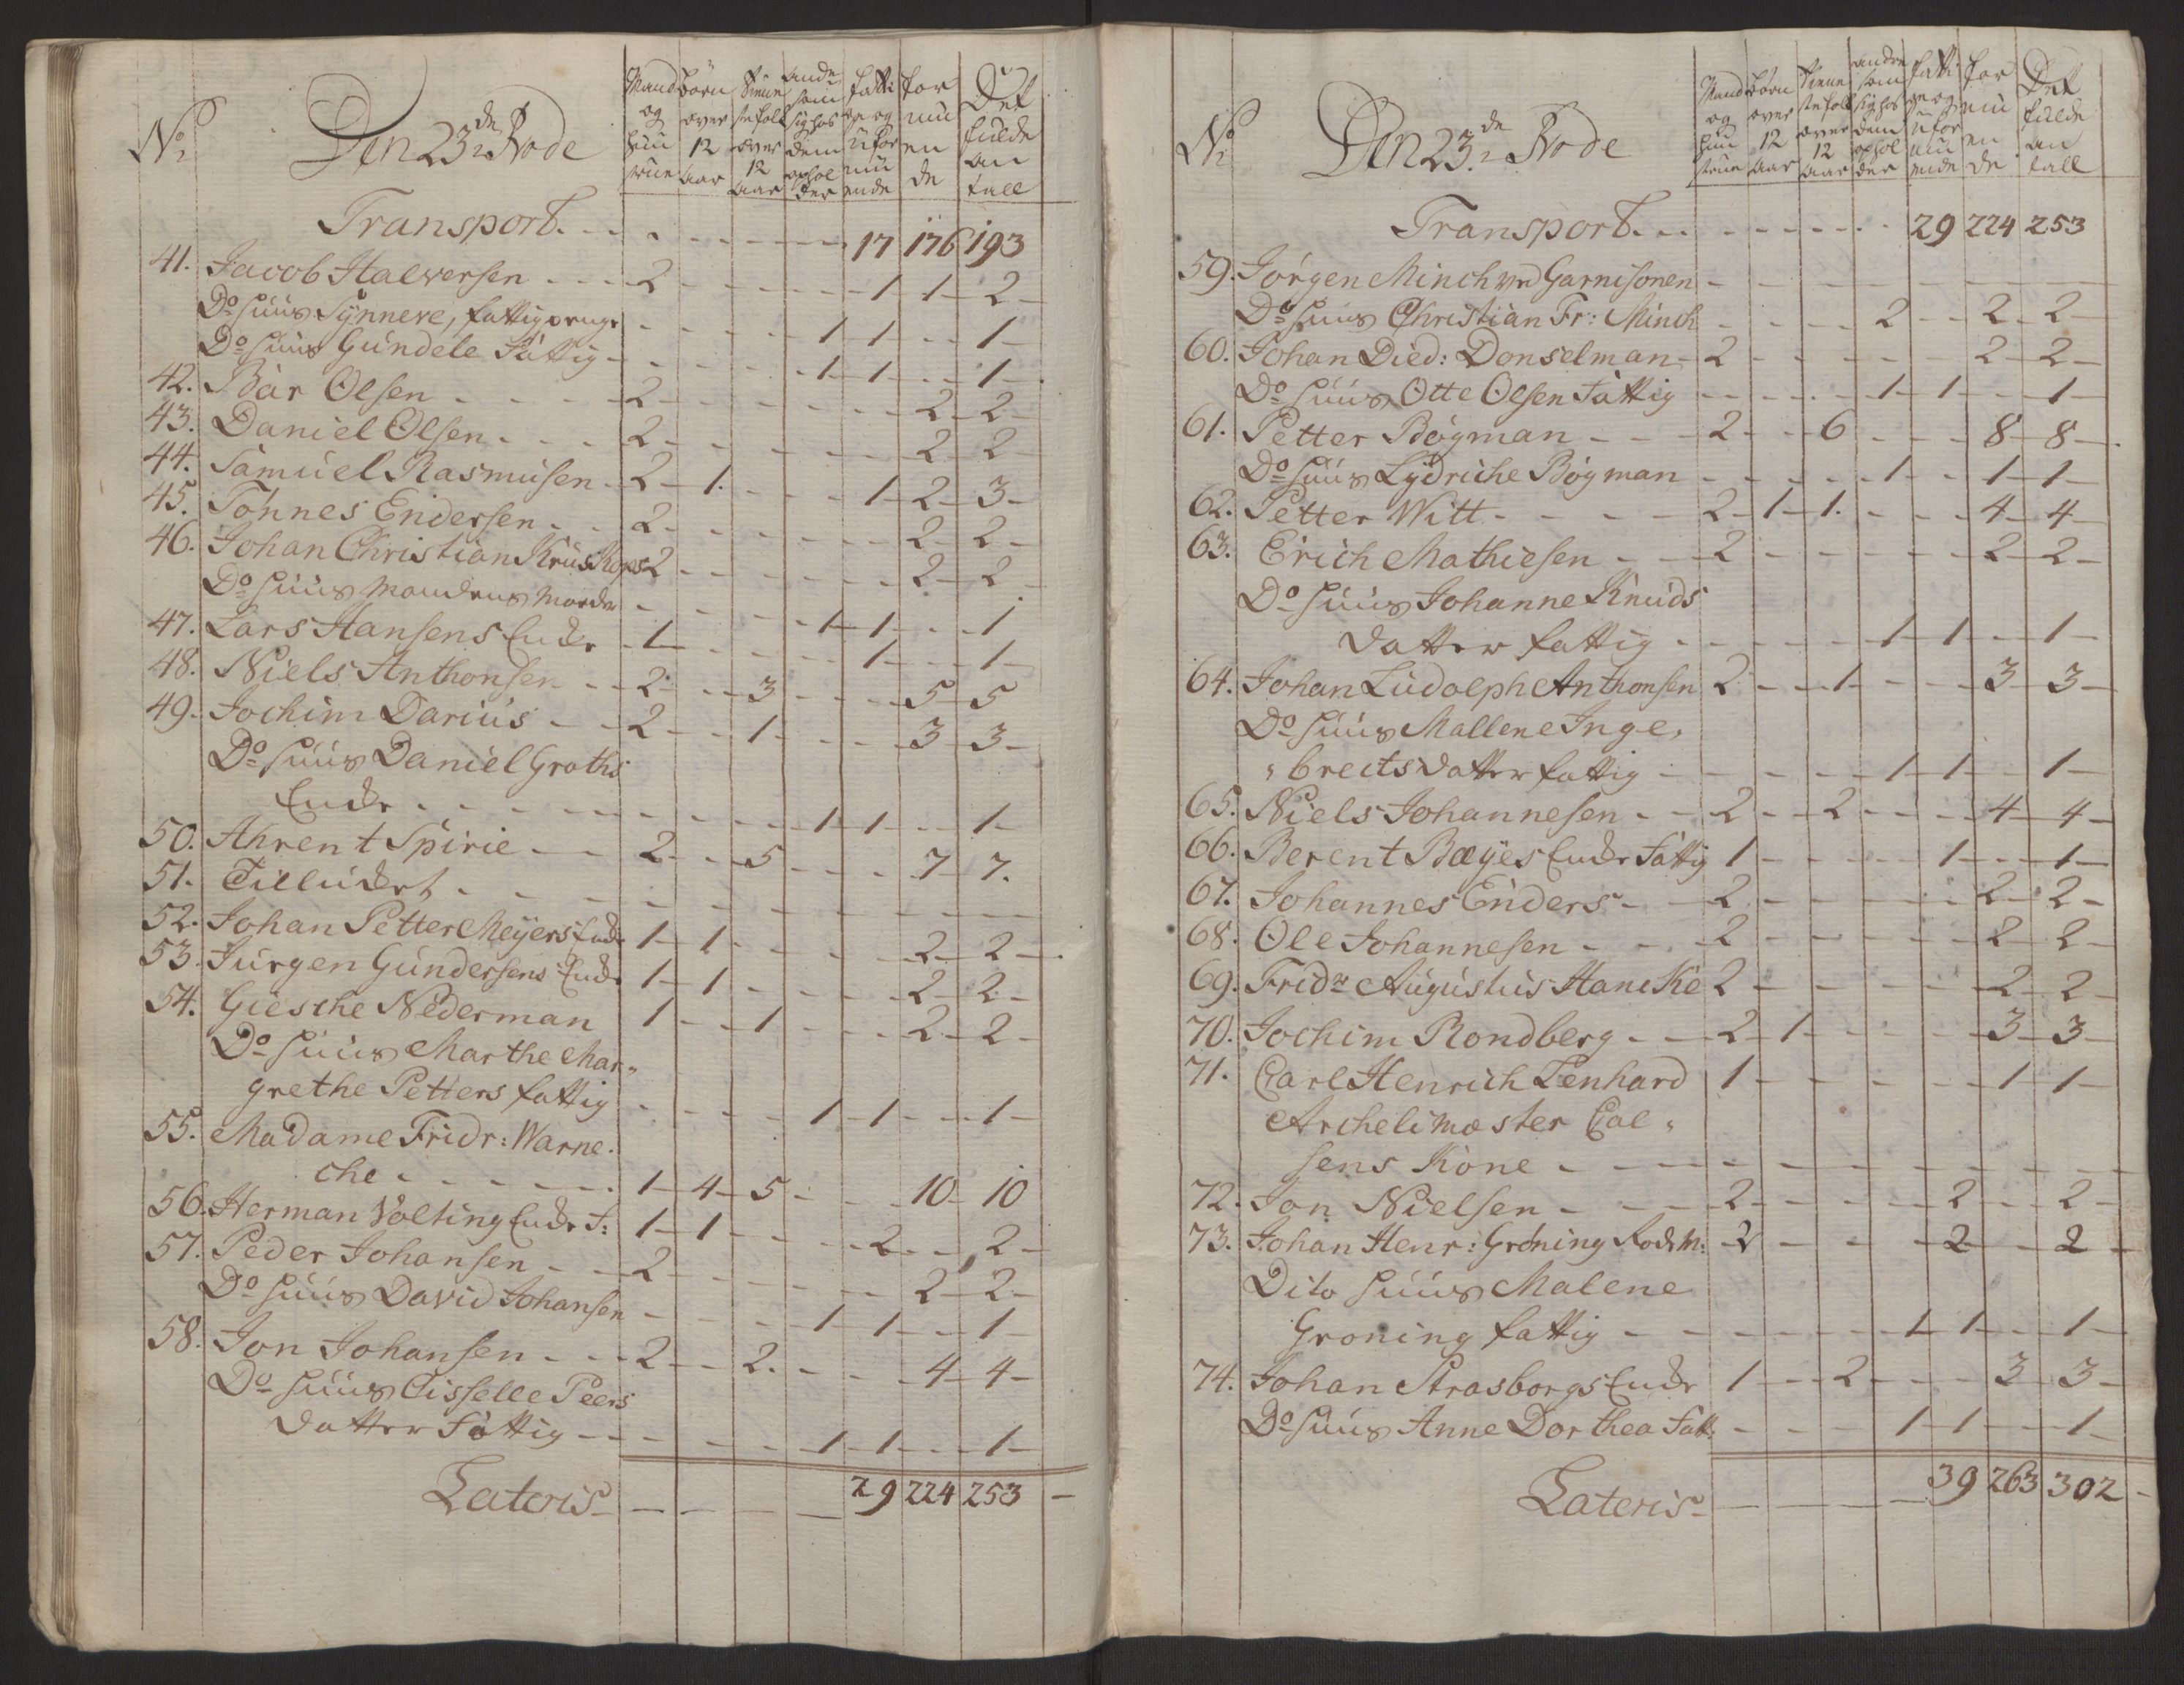 No
Den 23de Rode
Mand og Hustrue
Børn over 12 aar
Tienestefolk over 12 aar
andre som sig hos dem opholder
fattige og uformuende
formuende
Det fulde antall
Transport. - - - - - - 17 176 193
41. Jacob Halversen - - - 2 - - - - 1 - 1 - 2 -
Do Huus Synneve, fattig - - - - 1 - 1 - - 1 -
Do Huus Gundele Fattig - - - - 1 - 1 - - 1 -
42. Bår Olsen - - - - 2 - - - - - 2 - 2 -
43. Daniel Olsen - - - 2 - - - - - 2 2 -
44. Samuel Rasmusen - 2 - 1. - - - 1 - 2 - 3 -
45. Tohnes Endersen - - 2 - - - - - 2 - 2 -
46. Johan Christian Krus 2 - - - - - 2 - 2 -
Do Huus Mandens Moder - - - - 1 - 1 - - 1
47. Lars Hansens Enke - 1 - - - - 1 - - 1 -
48. Niels Anthonsen - - 2 - - 3 - - - 5 - 5
49. Jochim Darius - - 2 - - 1 - - - 3 - 3 -
Do Huus Daniel Groths
Enke - - - - - - - 1 - 1 - - 1 -
50. Ahrent Spirie - - 2 - - 5 - - - 7 - 7.
51. Tilludet - - - - - - - - -
52. Johan Petter Meyers Enke 1 - 1 - - - - 2 - 2 -
53. Jürgen Gundersens Enke 1 - 1 - - - - 2 - 2 -
54. Giesche Nederman 1 - - 1 - - - 2 - 2 -
Do Huus Marthe Mar„
grethe Petters fattig - - - - 1 - 1 - - 1 -
55. Madame Fridr: Warne.
che - - - - - 1 - 4 - 5 - - - 10 - 10
56. Herman Volting Enke F: 1 - 1 - - - 2 - - 2 -
57. Peder Johansen - - 2 - - - - - 2 - 2 -
Do Huus David Johansen - - - - 1 - 1 - - 1 -
58. Jon Johansen - - - 2 - - 2. - - - 4 - 4 -
Do Huus Cisselle Peers
datter Fattig - - - - - - 1 - 1 - - 1 -
Lateris - - - - 29 224 253 -
No
Den 23de Rode
Mand og Hustrue
Børn over 12 aar
Tienestefolk over 12 aar
andre som sig hos dem opholder
fattige og uformuende
formuende
Det fulde antall
Transport. - - - - - - 29 224 253
59. Jørgen Minch ved Garnisonen - - - - - - -
Do Huus Christian Fr: Minch - - - - 2 - - 2 - 2 -
60. Johan Died: Donselman - 2 - - - - - 2 - 2 -
Do Huus Otte Olsen Fattig - - - - 1 - 1 - - 1 -
61. Petter Bøgman - - - 2 - - 6 - - - 8 - 8 -
Do Huus Lydriche Bøgman - - - - 1 - - 1 - 1 -
62. Petter Witt - - - - 2 - 1 - 1. - - - 4 - 4 -
63. Erich Mathiesen - - 2 - - - - - 2 - 2 -
Do Huus Johanne Knuds
datter fattig - - - - - 1 - 1 - - 1 -
64. Johan Ludolph Anthonsen 2 - - 1 - - - 3 - 3 -
Do Huus Mallene Inge„
„brects datter fattig - - - - - 1 - 1 - - 1 -
65. Niels Johannesen - - 2 - - 2 - - - 4 - 4 -
66. Berent Bæyes Enke Fattig 1 - - - - 1 - - 1 -
67. Johannes Enders - - 2 - - - - - 2 - 2 -
68. Ole Johannesen - - - 2 - - - - - 2 - 2 -
69. Fridr Augustus Hancke 2 - - - - - 2 - 2 -
70. Jochim Rondberg - - 2 - 1 - - - - 3 - 3 -
71. Carl Henrich Lenhard 1 - - - - - 1 1 -
Archelimæster Cal„
sens Kone - - - - - - - - - -
72. Jon Nielsen - - - 2 - - - - 2 - - 2 -
73. Johan Henr: Grøning Rodem: 2 - - - - 2 - - 2 -
Dito Huus Malene
Groning fattig - - - - - - 1 - 1 - - 1 -
74. Johan Strasborgs Enke 1 - - 2 - - - 3 - 3 -
Do Huus Anne Dorthea Fatt: - - - - 1 - 1 - - 1 -
Lateris - - - - 39 263 302 -